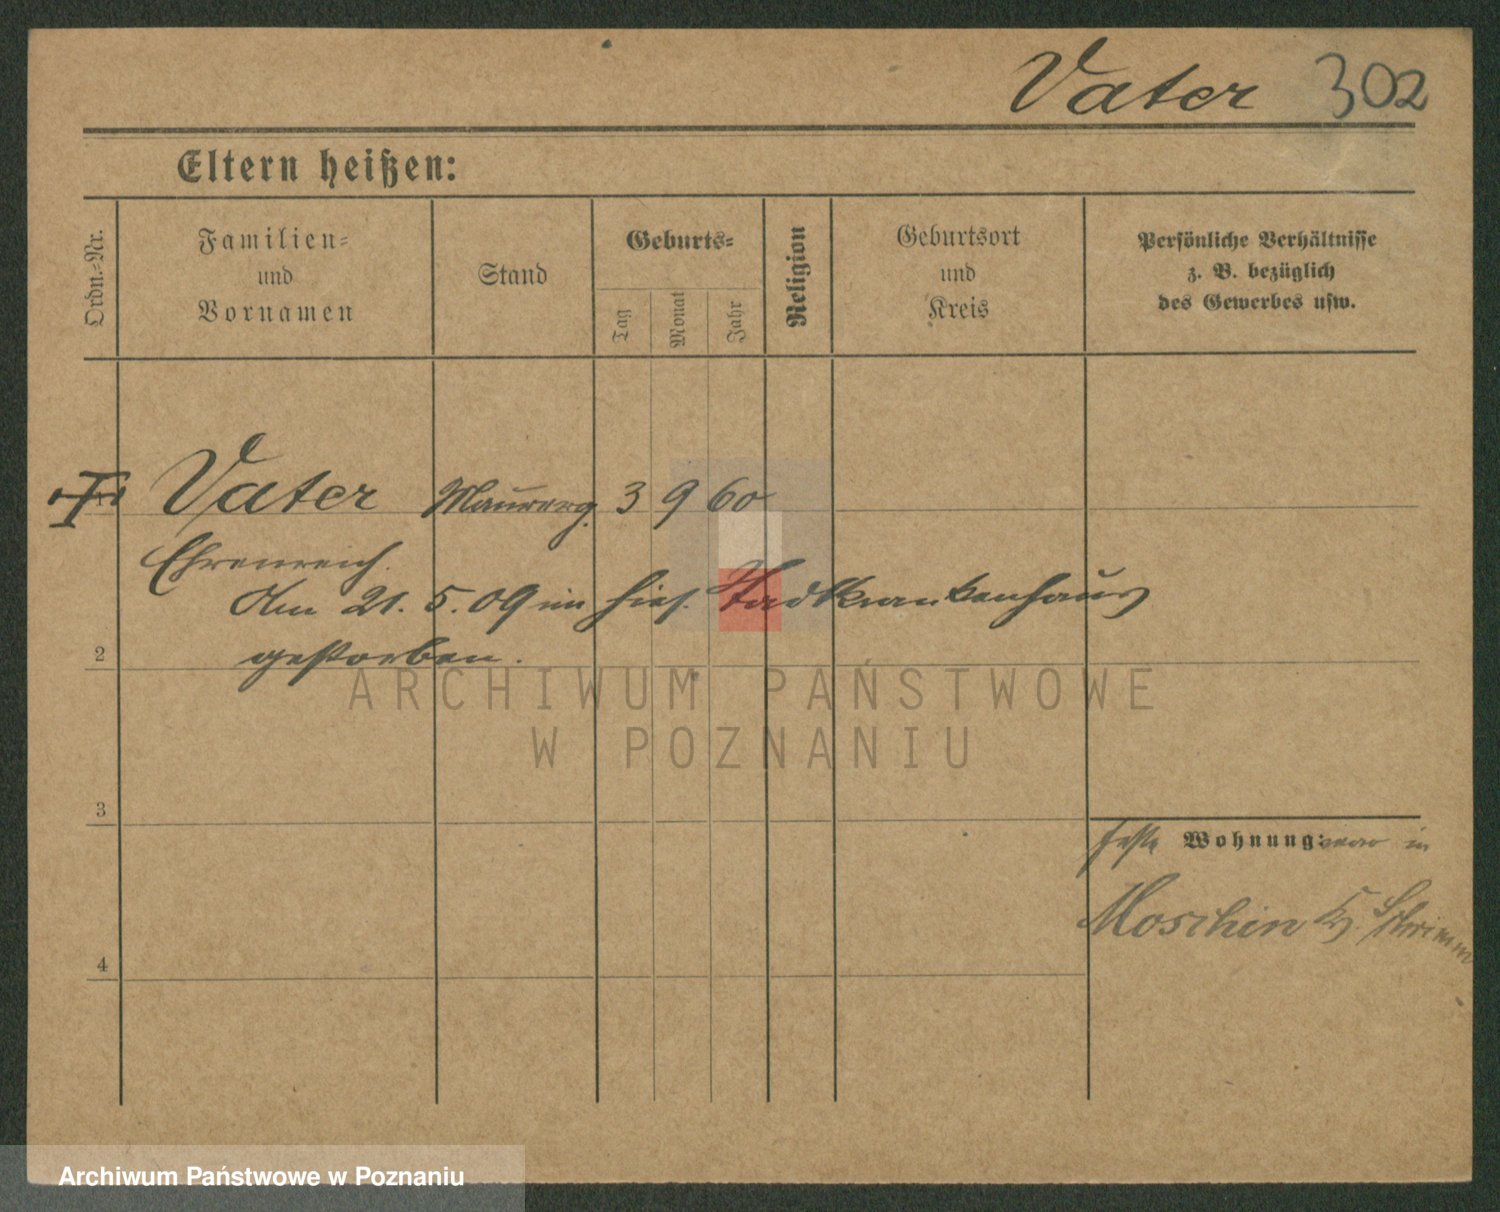 Vater 302
Eltern heißen:
Ordn.-Nr.
Familien-
und
Vornamen
Stand
Geburts-
Tag
Monat
Jahr
Religion
Geburtsort
und
Kreis
Persönliche Verhältnisse
z. B. bezüglich
des Gewerbes usw.
Vater Maurerg. 3 9 60
Ehrenreich.
Am 21. 5. 09 im hies. Stadtkrankenhaus
gestorben.
2
ARCHIWUM PAŃSTWOWE
W POZNANIU
3
feste Wohnung: war in
Moschin Kr. Schrimm
4
Archiwum Państwowe w Poznaniu